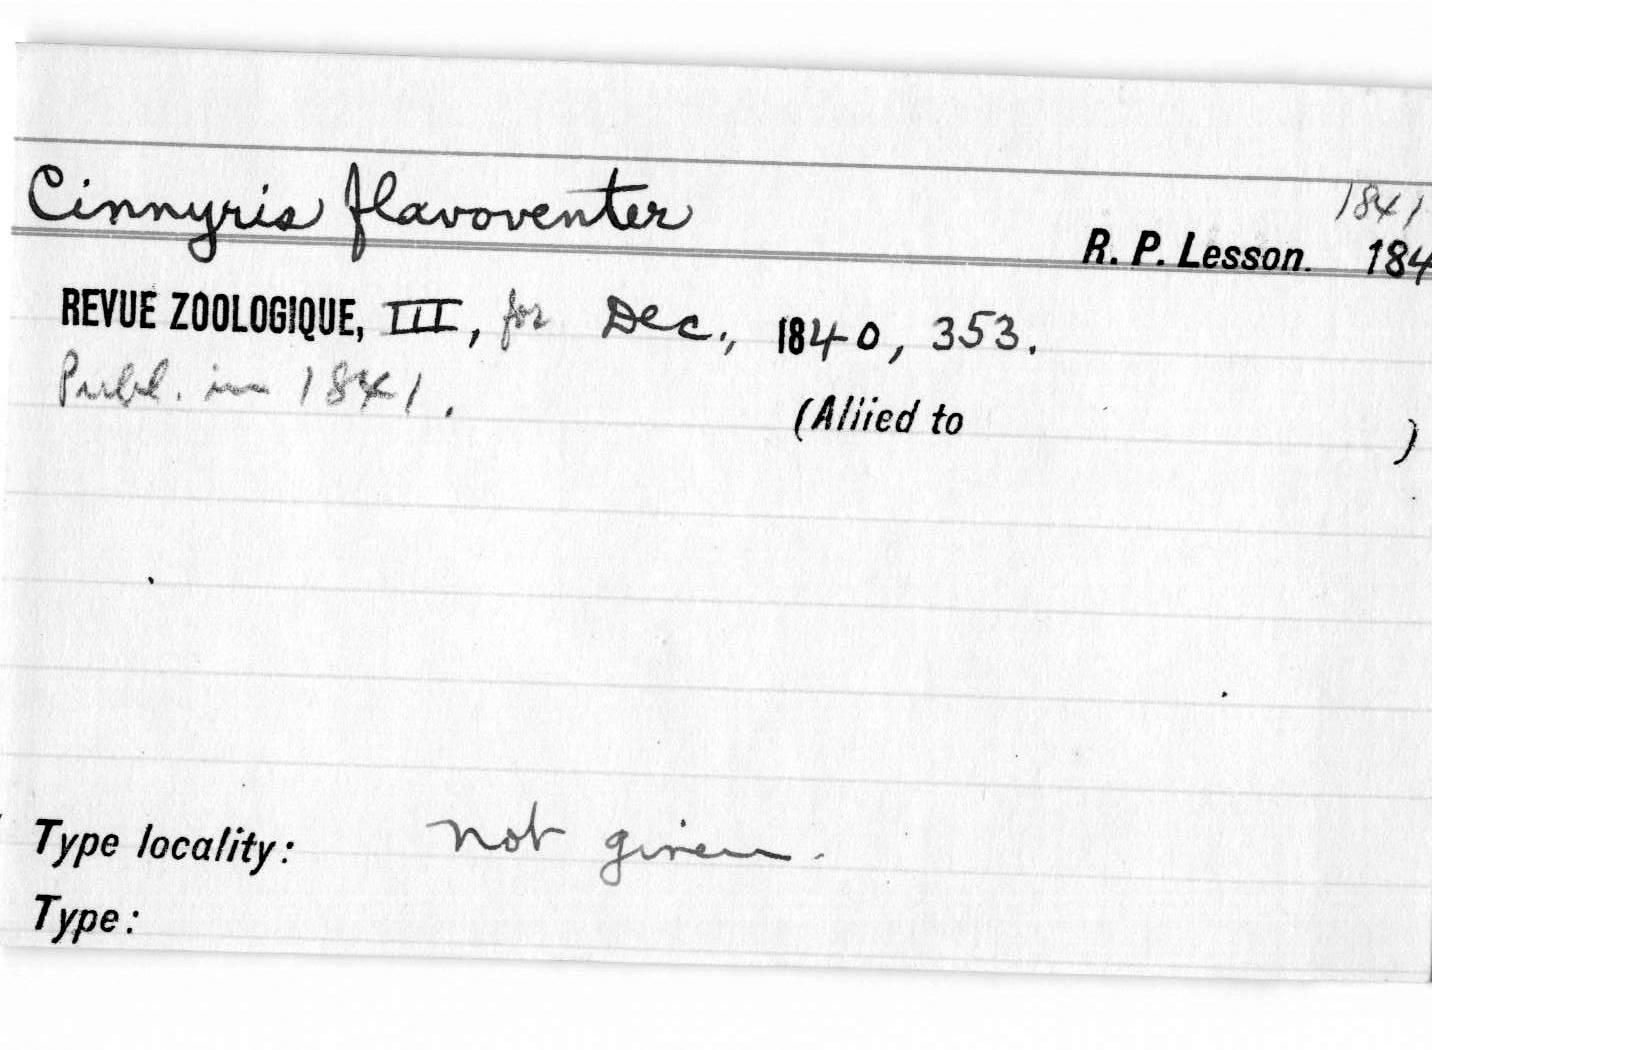 Cinnyris flavoventer
1841
R. P. Lesson. 184
REVUE ZOOLOGIQUE, III, for Dec., 1840, 353.
Publ. in 1841.
(Allied to )
Type locality: not given.
Type: